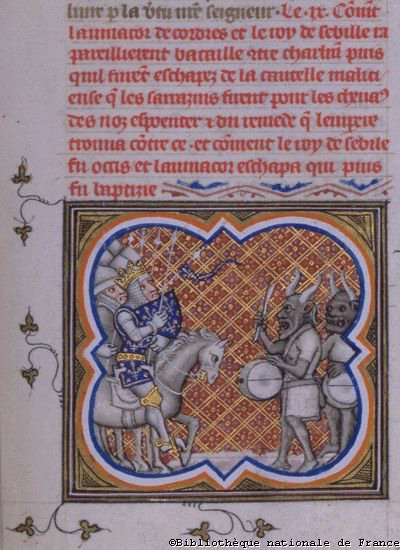 liure p la vtu nre seigneur. Le .ix. Coment
laumacor de cordres et le roy de sebille ra
pareillierent bataille 9tre charlm puis
quil furent eschapez de la cautelle malici
euse q les sarrazins firent pour les cheuaus
des noz espouenter et du remede q lempere
trouua contre ce. et coment le roy de sebile
fu occis et laumacor eschapa qui puis
fu baptizie
©Bibliothèque nationale de France